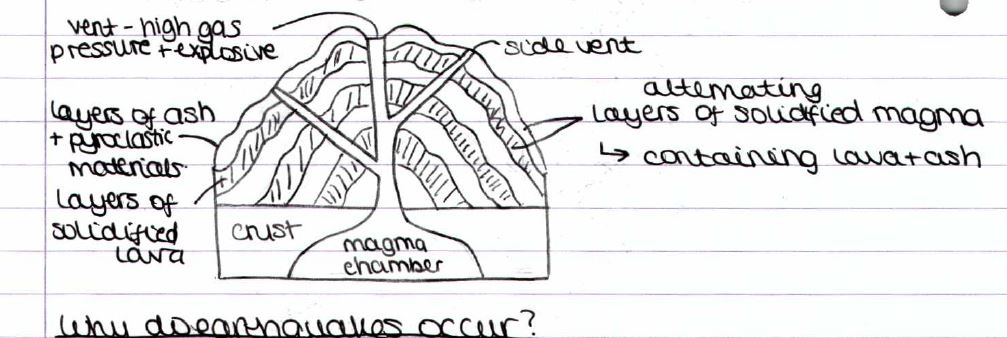 vent - high gas
pressure + explosive
side vent
alternating
layers of solidified magma
↳ containing lava + ash
layers of ash
+ pyroclastic
materials
layers of
solidified
lava
crust
magma
chamber
Why do earthquakes occur?